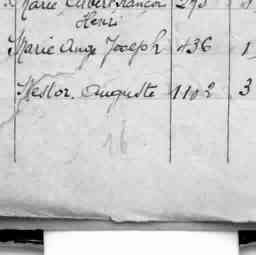 Marie Albert Francois 293
Henri
Marie Ange Joseph 436 1
Nestor Auguste 1102 3
16